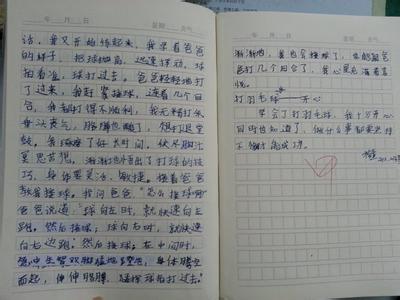 年 月 日 星期 天气
话，我又开始练起来，我学着爸爸
的样子，把球抛高，迅速挥动，球拍
着过，球打过去。爸爸轻轻地打
了过来，我赶紧接球，连着几个回
合，我都打得不顺利，我无精打采
垂头丧气，胳膊也酸了，
我琢磨了好长时间，
冥思苦想，渐渐地悟出了打球的技
巧，身体要灵活、敏捷。接着爸爸
教我接球。我问爸爸："怎么接球啊？"
爸爸说道："球向左时，就快速向左
跑，然后接球；球向右时，就快速
向右边跑，然后接球；在中间时，
身体腾空
而起，伸伸胳膊，猛挥球拍打过去。"
年 月 日 星期 天气
渐渐地，我也会接球了，也能跟爸
爸打几个回合了，我心里充满着喜
悦。
打羽毛球——开心
学会了打羽毛球，我十分开心，
同时也知道了，做什么事都要坚持
不懈才能成功。